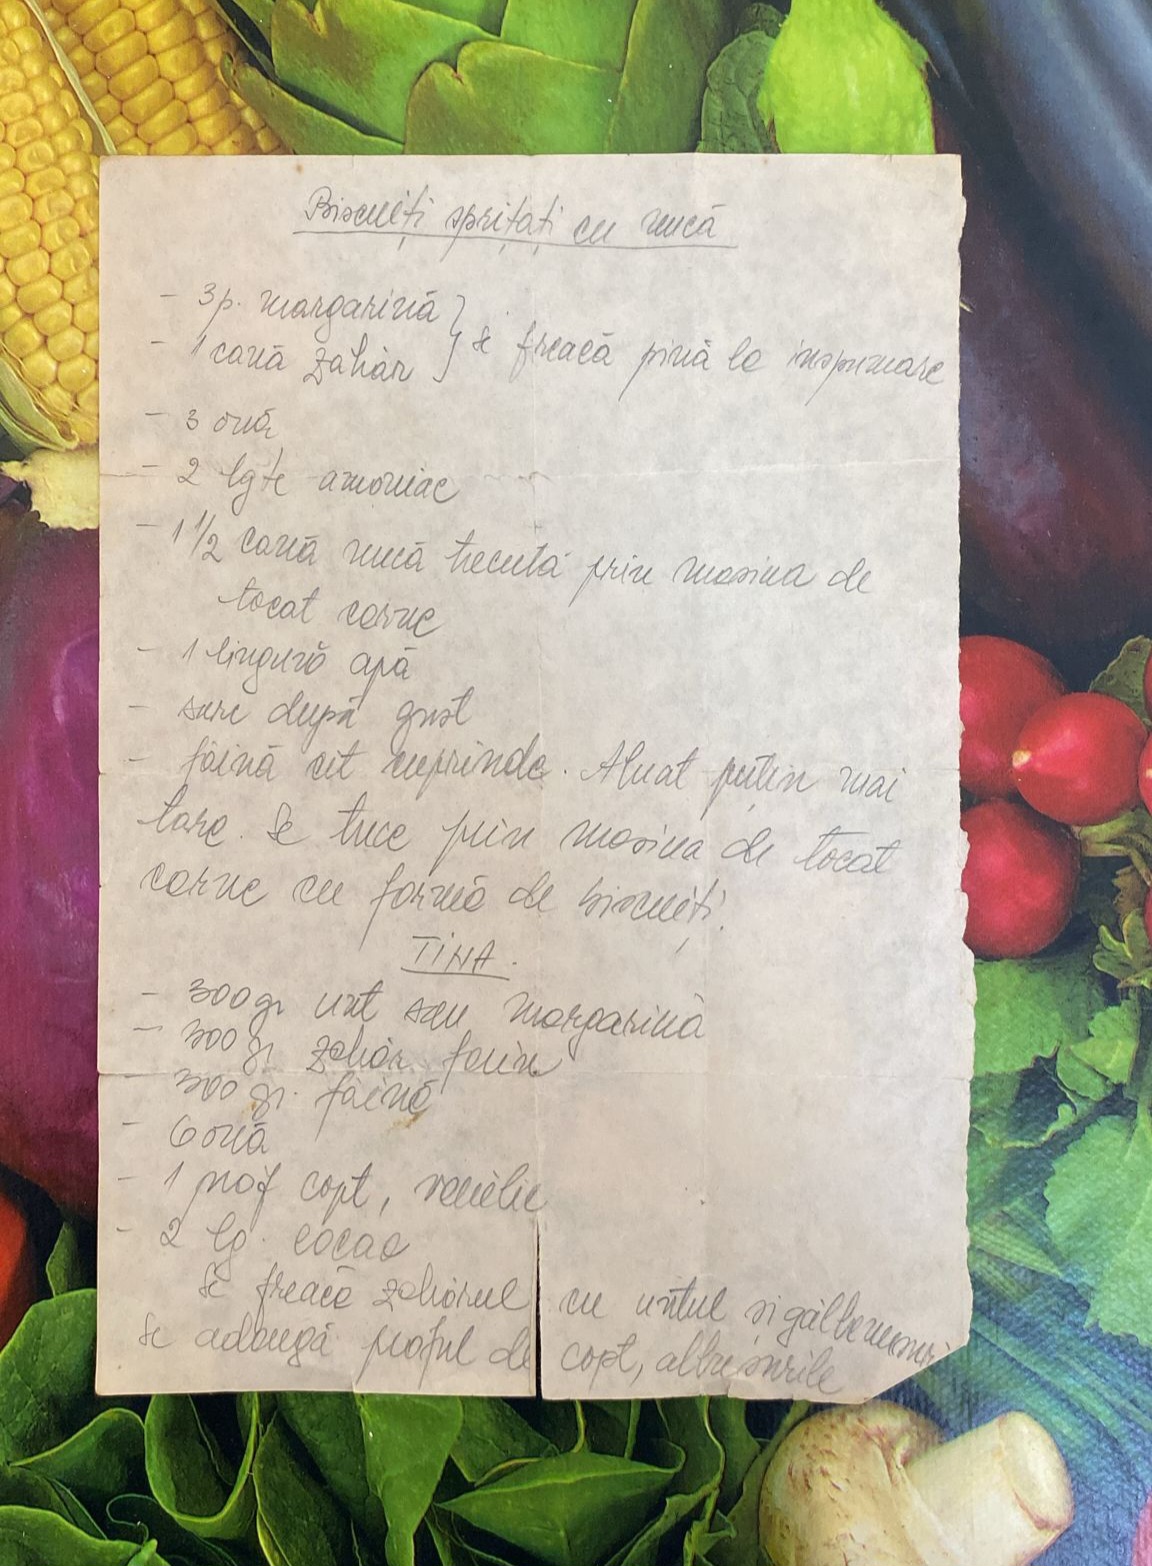 Biscuiți sprițați cu nucă
- 3 p. margarină }
- 1 cană zahăr } se freacă pînă la inspumare
- 3 ouă
- 2 lgțe amoniac
- 1 1/2 cană nucă trecută prin mașina de
tocat carne
- 1 lingură apă
- sare după gust
- făină cît cuprinde. Aluat puțin mai
tare. Se trece prin mașina de tocat
carne cu formă de biscuiți.
TINA.
- 300 gr unt sau margarină
- 300 gr zahăr farin
- 300 gr. făină
- 6 ouă
- 1 praf copt, vanilie
- 2 lg. cacao
Se freacă zahărul cu untul și gălbenușuri
Se adaugă praful de copt, albușurile